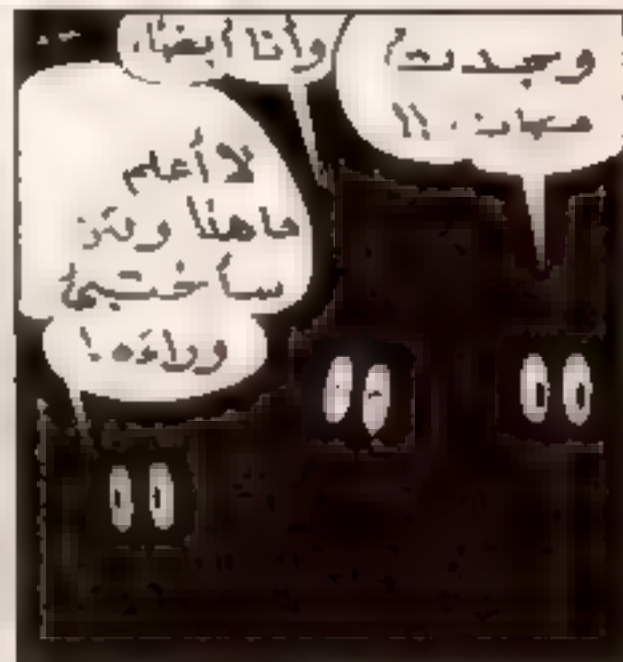 وجدت
مكان !!
وأنا أيضاً.
لا أعلم
ماهذا ولكن
سأختبئ
وراءه !